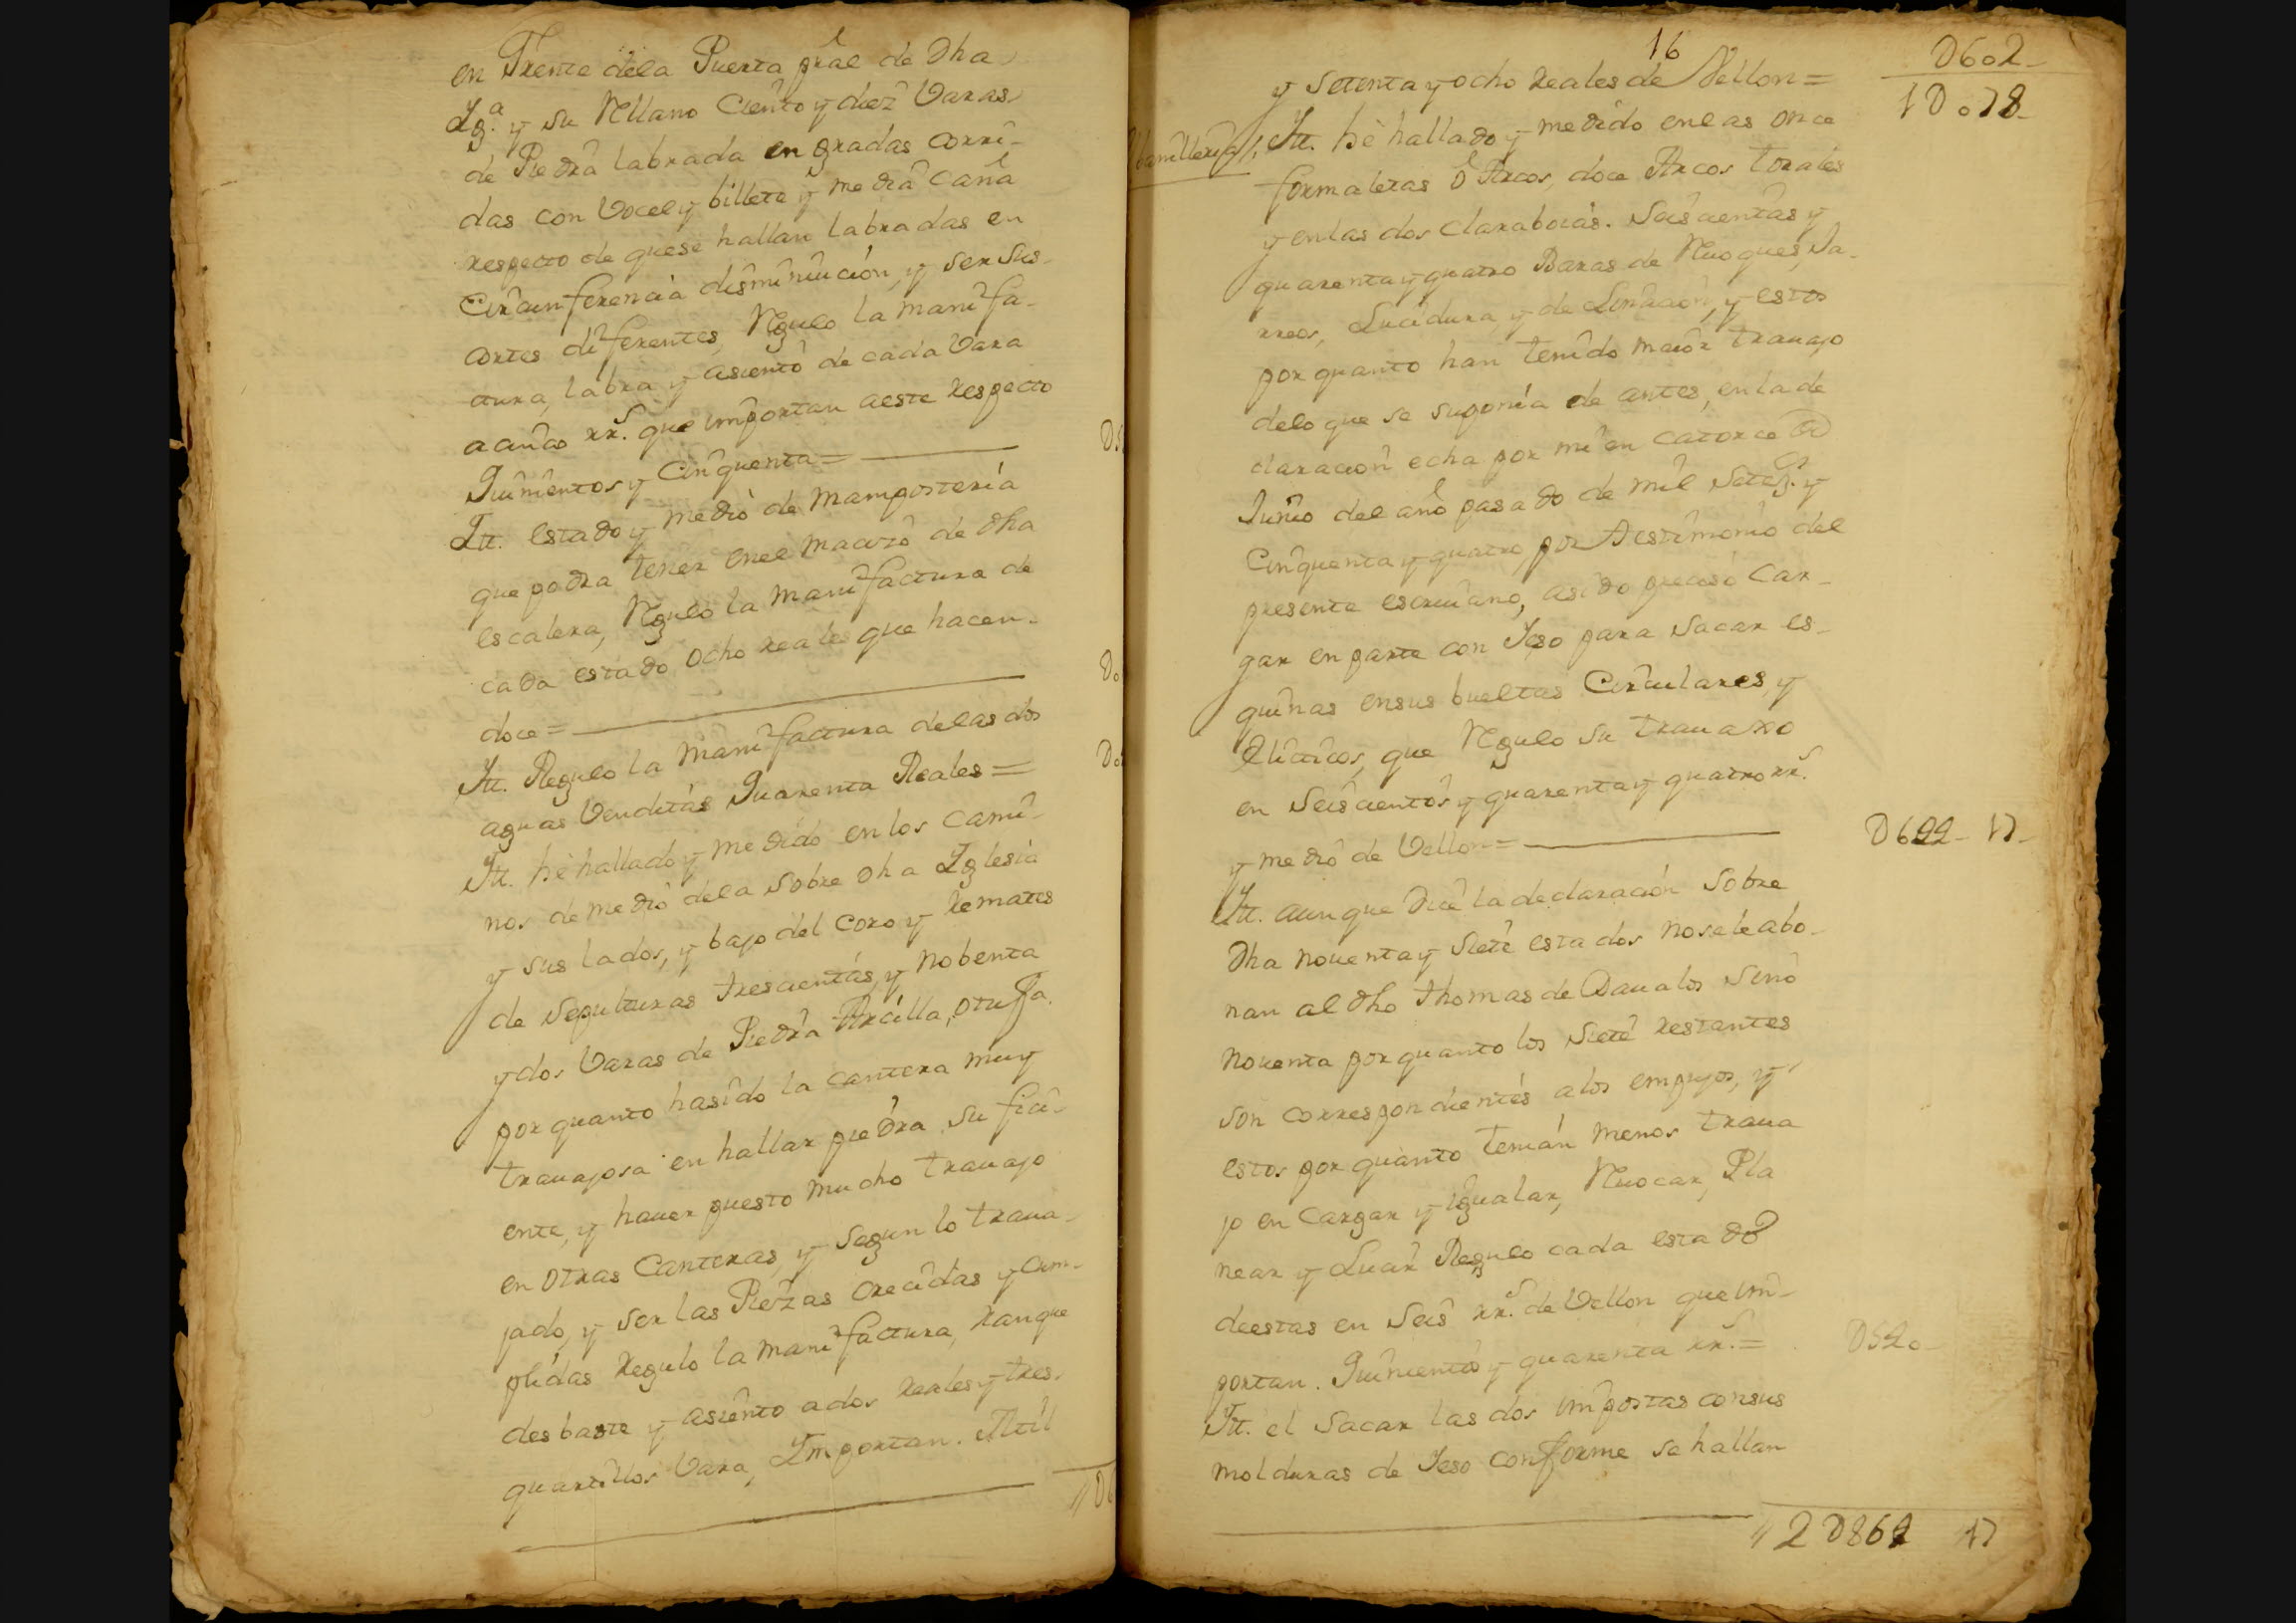 en Frente dela Puerta pral de Dha
Iga. y su Rellano Ciento y diez Varas
de Piedra labrada en gradas corri-
das con Vocel y billete y media caña
respecto de que se hallan labradas en
Circunferencia disminución, y ser sus
cortes diferentes, Rgulo la manifa-
ctura, labra y asiento de cada Vara
a cinco rrs. que importan aeste respecto
Quinientos y Cinquenta =
Itt. estado y medio de Mamposteria
que podra tener enel macizo de dha
escalera, Rgulo la Manifactura de
cada estado ocho reales que hacen
doce =
Itt. Regulo la Manifactura delas dos
aguas Venditas Quarenta Reales =
Itt. hè hallado y medido en los cami-
nos de medio dela Sobre Dha Iglesia
y sus lados, y bajo del coro y remates
de sepulturas trescientas, y Nobenta
y dos Varas de Piedra Arcilla, o tufa
por quanto hasido la cantera muy
trauajosa en hallar piedra sufici-
ente, y hauer puesto mucho trauajo
en otras Canteras, y segun lo traua-
jado, y ser las Piezas crecidas y cum-
plidas regulo la manifactura, ranque
desbaste y asiento a dos reales y tres
quartillos Vara, Importan. Mil
16
D602
y setenta y ocho reales de Vellon =
1D078
Itt. hè hallado y medido enlas once
formaletas ô Arcos, doce Arcos torales
y enlas dos claraboias. Seiscientas y
quarenta y quatro Baras de Ruoques, Ja-
rreos, Lucidura, y de Liniacion, y estos
por quanto han tenido maior trauajo
delo que se suponia de antes, en la de
claracion echa por mi en catorce de
Junio del año pasado de mil Setezs. y
Cinquenta y quatro, por testimonio del
presente escriuano, asido preciso car-
gar en parte con Ieso para sacar es-
quinas ensus bueltas Circulares, y
Eliticos, que Rgulo su trauaxo
en Seiscientos y quarenta y quatro rrs.
y medio de Vellon =
D644 - 17
Itt. aunque dice la declaración Sobre
Dha nouenta y siete estados noseleabo-
nan al dho thomas de Daualos sino
nouenta por quanto los siete restantes
son correspondientes alos empujos, y
estos por quanto tenian menos traua
jo en cargar y igualar, Reuocar, Pla
near y Lucir Regulo cada estado
deestas en Seis rrs. de Vellon que im-
portan. Quinientos y quarenta rrs. =
D540
Itt. el sacar las dos impostas consus
molduras de Ieso conforme se hallan
2D862 17